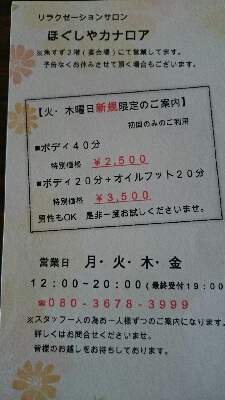 リラクゼーションサロン
ほぐしやカナロア
※角すず2階(宴会場)にて営業してます。
予告なくお休みさせて頂く場合もございます。
【火・木曜日新規限定のご案内】
初回のみのご利用
■ボディ40分
特別価格 ¥2,500
■ボディ20分+オイルフット20分
特別価格 ¥3,500
男性もOK 是非一度お試しくださいませ。
営業日 月・火・木・金
12:00~20:00(最終受付19:00
☎080-3678-3999
※スタッフ一人の為お一人様ずつのご案内になります。
詳しくはお問合せくださいませ。
皆様のお越しをお待ちしております。